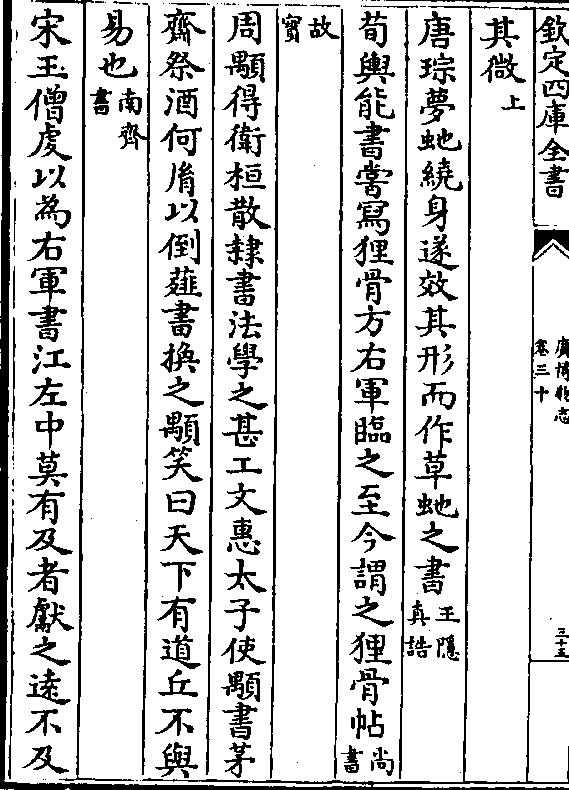 欽定四庫全書
廣博物志
卷三十
三十五
其微上
唐琮夢虵繞身遂效其形而作草虵之書王隱
真誥
荀輿能書嘗寫狸骨方右軍臨之至今謂之狸骨帖尚
書
故
實
周顒得衛桓散隸書法學之甚工文惠太子使顒書茅
齋祭酒何胤以倒薤書換之顒笑曰天下有道丘不與
易也南齊
書
宋王僧虔以為右軍書江左中莫有及者獻之遠不及